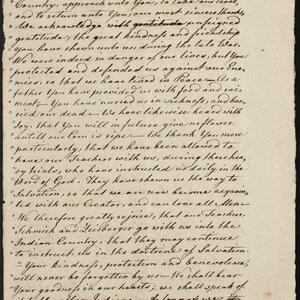 Country, approach unto You, to take our leave
and to return unto You, our most sincere thanks,
We acknowledge with gratitude unfeigned
gratitude, the great kindness and friendship
You have shewn unto us during the late War.
We were indeed in danger of our lives, but You
protected and defended us against our Ene-
mies, so that we have lived in Peace — As a
father You have provided us with food and rai-
ment — You have nursed us in Sickness, and bu-
ried our dead — We have likewise heard with
Joy, that You will in future give us flour,
untill our Corn is ripe — We thank You more
particularly, that we have been allowed to
have our Teachers with us, during these hea-
vy trials, who have instructed us daily in the
Word of God. They have shewn us the way to
Salvation, so that we are now become acquain-
ted with our Creator, and can love all Men
We therefore greatly rejoice, that our Teachers,
Schmick and Zeisberger go with us into the
Indian Country, that they may continue
to instruct us in the doctrine of Salvation.
Your kindness, protection and benevolence,
will never be forgotten by us — We shall bear
Your goodness in our hearts; we shall speak